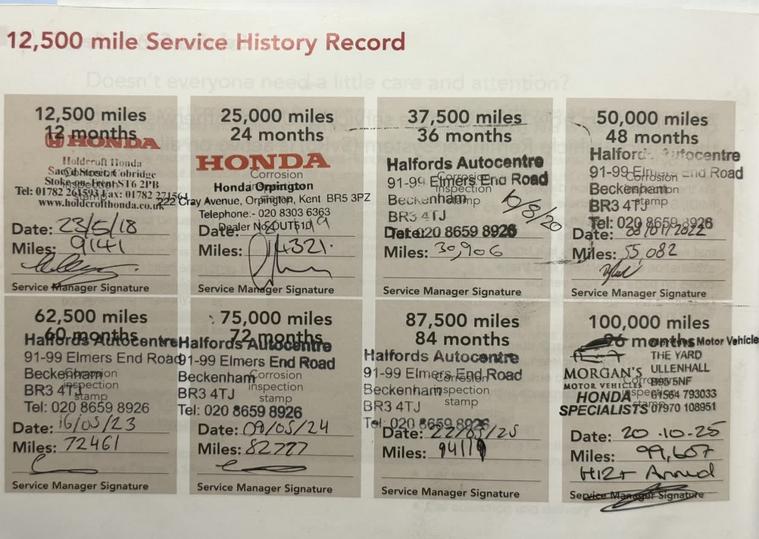 12,500 mile Service History Record
Doesn't everyone need a little care and attention?
12,500 miles
12 months
HONDA
Holdcroft Honda
Street, Cobridge
Stoke-on-Trent ST6 2PB
Tel: 01782 261593 Fax: 01782
www.holdcrofthonda.co.uk
Date: 23/5/18
Miles: 9141
Service Manager Signature
25,000 miles
24 months
HONDA
Corrosion
Honda Orpington
222 Cray Avenue, Orpington, Kent BR5 3PZ
Telephone:- 020 8303 6363
Dealer No:
Date:
Miles: 4321.
Service Manager Signature
37,500 miles
36 months
Halfords Autocentre
91-99 Elmers End Road
Corrosion
inspection
Beckenham
stamp
BR3 4TJ
Tel: 020 8659 8926
10/8/20
Date:
Miles: 30,906
Service Manager Signature
50,000 miles
48 months
Halfords Autocentre
91-99 Elmers End Road
Corrosion
Beckenham
inspection
stamp
BR3 4TJ
Tel: 020 8659 8926
Date: 08/01/2022
Miles: 55,082
Service Manager Signature
62,500 miles
60 months
Halfords Autocentre
91-99 Elmers End Road
Beckenham
Corrosion
inspection
BR3 4TJ
stamp
Tel: 020 8659 8926
Date: 16/05/23
Miles: 72461
Service Manager Signature
75,000 miles
72 months
Halfords Autocentre
91-99 Elmers End Road
Beckenham
Corrosion
inspection
BR3 4TJ
stamp
Tel: 020 8659 8926
Date: 09/05/24
Miles: 82777
Service Manager Signature
87,500 miles
84 months
Halfords Autocentre
91-99 Elmers End Road
Corrosion
Beckenham
inspection
stamp
BR3 4TJ
Tel: 020 8659 8926
Date: 22/05/25
Miles:
Service Manager Signature
100,000 miles
96 months
Motor Vehicle
THE YARD
MORGAN'S
ULLENHALL
MOTOR VEHICLES
B95 5NF
HONDA
01564 793033
SPECIALISTS
07970 108951
Date: 20.10.25
Miles: 99,607
Service Manager Signature